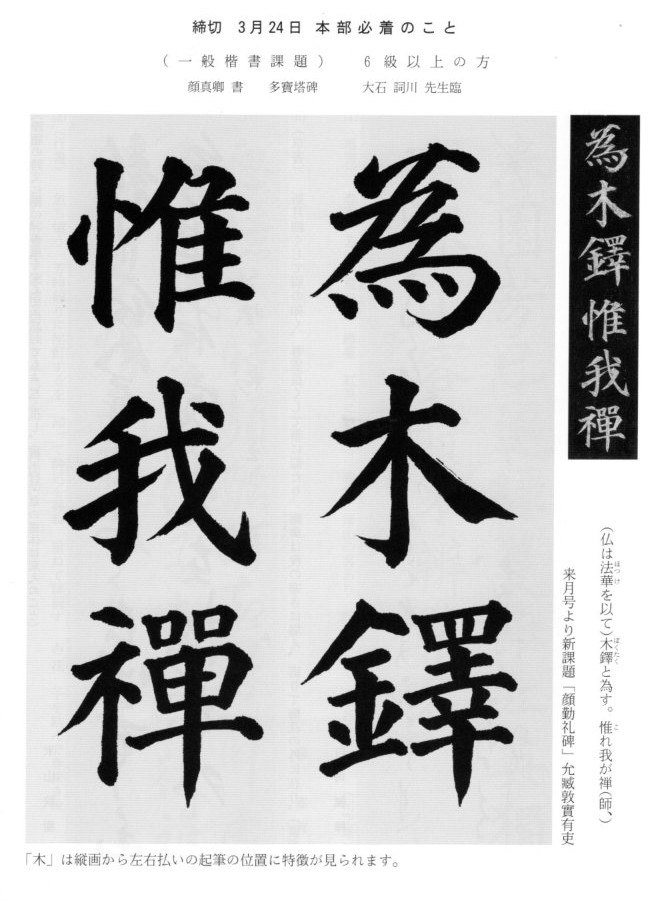 締切 3月24日 本部必着のこと
(一般楷書課題) 6級以上の方
顔真卿 書 多寶塔碑 大石 詞川 先生臨
為木鐸惟我禪
為木鐸
惟我禪
(仏は法華を以て)木鐸と為す。惟れ我が禅(師、)
ほっけ
ぼくたく
こ
来月号より新課題「顔勤礼碑」允臧敦實有吏
「木」は縦画から左右払いの起筆の位置に特徴が見られます。